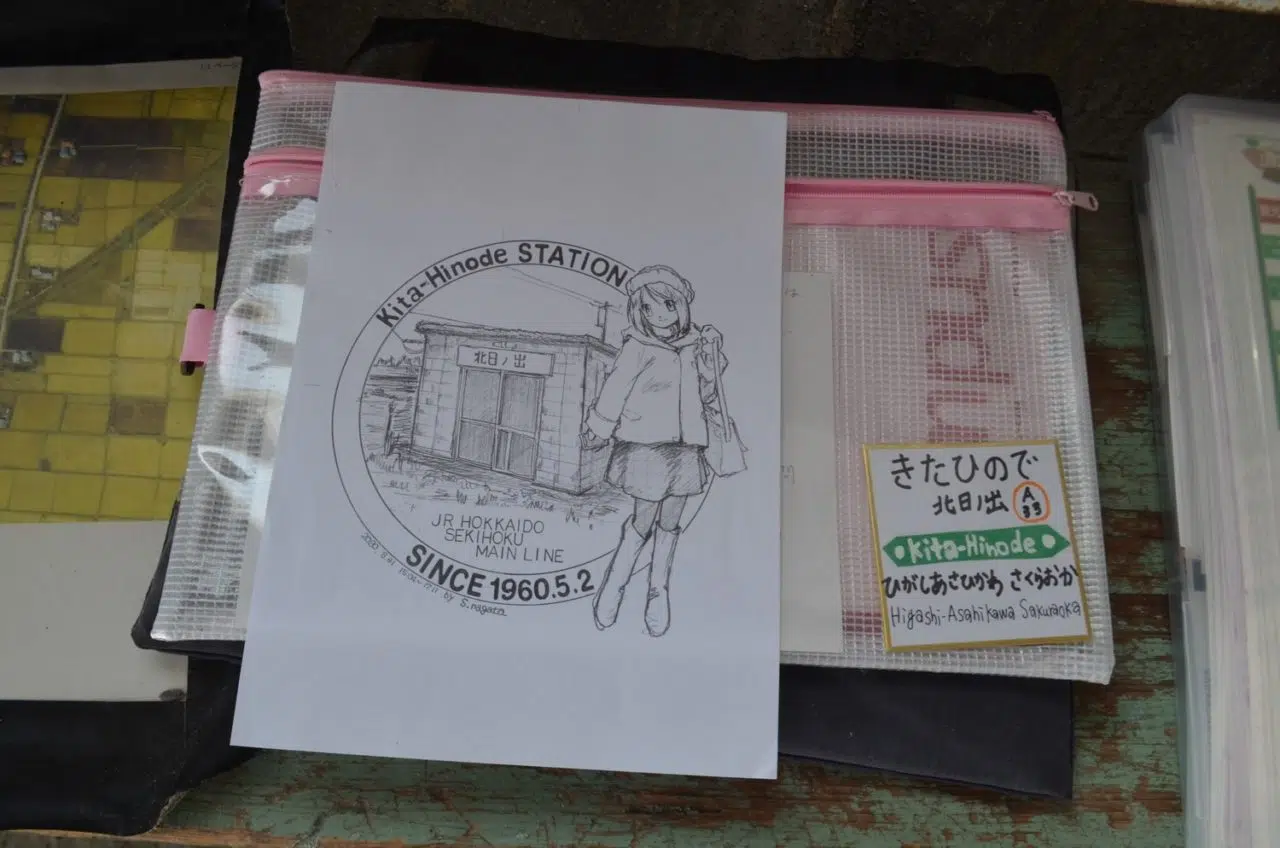 Kita-Hinode STATION
北日ノ出
JR HOKKAIDO
SEKIHOKU
MAIN LINE
SINCE 1960.5.2
きたひので
北日ノ出 A
33
Kita-Hinode
ひがしあさひかわ さくらおか
Higashi-Asahikawa Sakuraoka